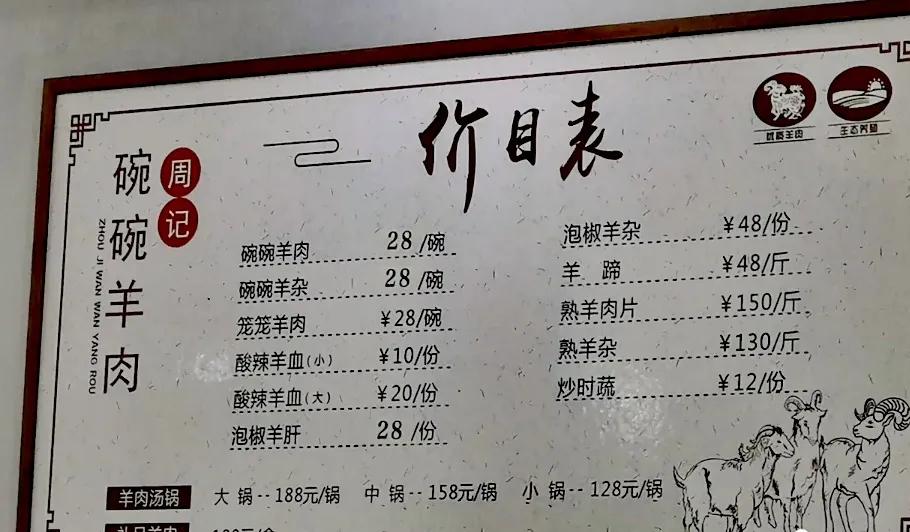 价目表
优质羊肉
生态养殖
周记
碗碗羊肉
ZHOU JI WAN WAN YANG ROU
碗碗羊肉 28/碗
碗碗羊杂 28/碗
笼笼羊肉 ¥28/碗
酸辣羊血(小) ¥10/份
酸辣羊血(大) ¥20/份
泡椒羊肝 28/份
泡椒羊杂 ¥48/份
羊 蹄 ¥48/斤
熟羊肉片 ¥150/斤
熟羊杂 ¥130/斤
炒时蔬 ¥12/份
羊肉汤锅 大 锅--188元/锅 中 锅--158元/锅 小 锅--128元/锅